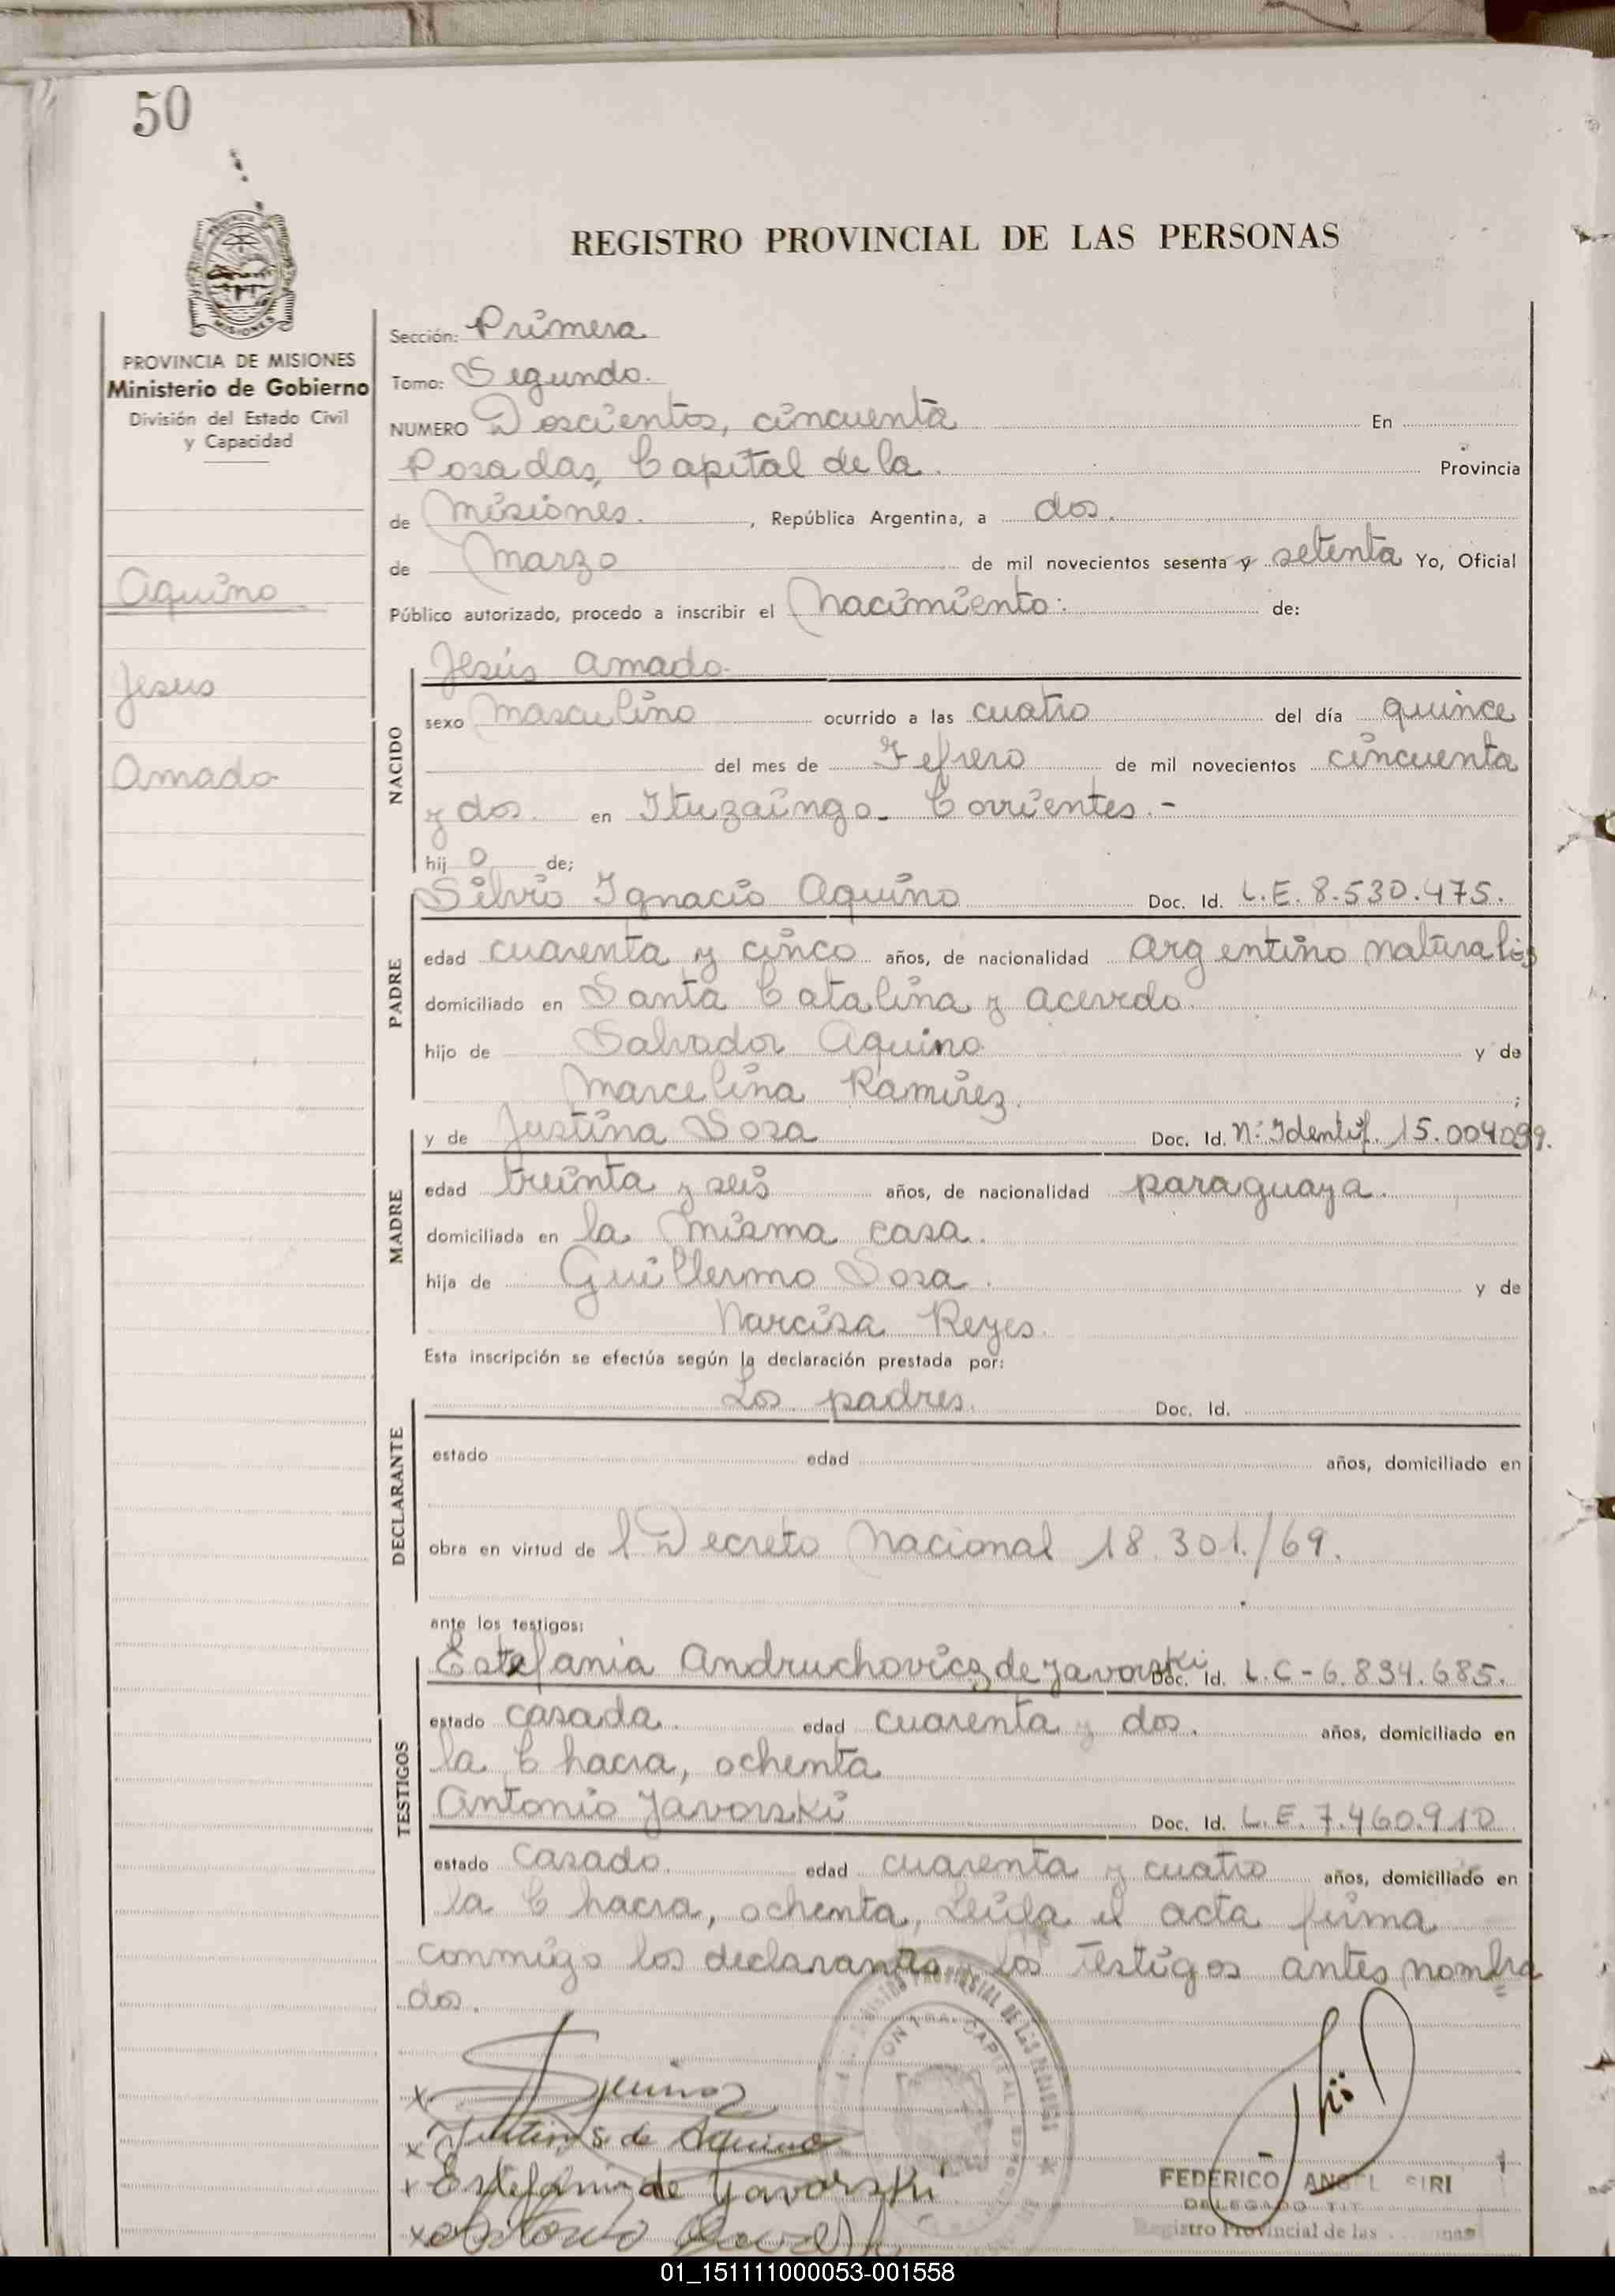 50
REGISTRO PROVINCIAL DE LAS PERSONAS
PROVINCIA DE MISIONES
Ministerio de Gobierno
División del Estado Civil
y Capacidad
Aquino
Jesus
Amado
Sección: Primera
Tomo: Segundo.
NUMERO Doscientos, cincuenta En
Posadas, Capital de la. Provincia
de Misiones. , República Argentina, a dos.
de Marzo de mil novecientos sesenta y setenta Yo, Oficial
Público autorizado, procedo a inscribir el Nacimiento: de:
NACIDO
Jesús Amado.
sexo Masculino ocurrido a las cuatro del día quince
del mes de Febrero de mil novecientos cincuenta
y dos. en Ituzaingo - Corrientes. -
hij o de;
PADRE
Silvio Ignacio Aquino Doc. Id. L.E. 8.530.475.
edad cuarenta y cinco años, de nacionalidad Argentino naturaliz
domiciliado en Santa Catalina y Acevedo.
hijo de Salvador Aquino y de
Marcelina Ramirez. ;
MADRE
y de Justina Sosa Doc. Id. N° Identif. 15.004.099.
edad treinta y seis años, de nacionalidad paraguaya.
domiciliada en la misma casa.
hija de Guillermo Sosa. y de
Narcisa Reyes.
Esta inscripción se efectúa según la declaración prestada por:
DECLARANTE
Los padres. Doc. Id.
estado edad años, domiciliado en
obra en virtud de l Decreto Nacional 18.301./69.
ante los testigos:
TESTIGOS
Estefania Andruchovicz de Javorski Doc. Id. L.C - 6.834.685.
estado casada. edad cuarenta y dos. años, domiciliado en
la Chacra, ochenta
Antonio Javorski Doc. Id. L.E. 7.460.910
estado Casado. edad cuarenta y cuatro años, domiciliado en
la Chacra, ochenta, Leída el acta firma
conmigo los declarantes y los testigos antes nombra
dos.
x
x Justina S. de Aquino
x Estefania de Javorski
x Antonio
FEDERICO ANGEL SIRI
DELEGADO TIT.
Registro Provincial de las
01_151111000053-001558